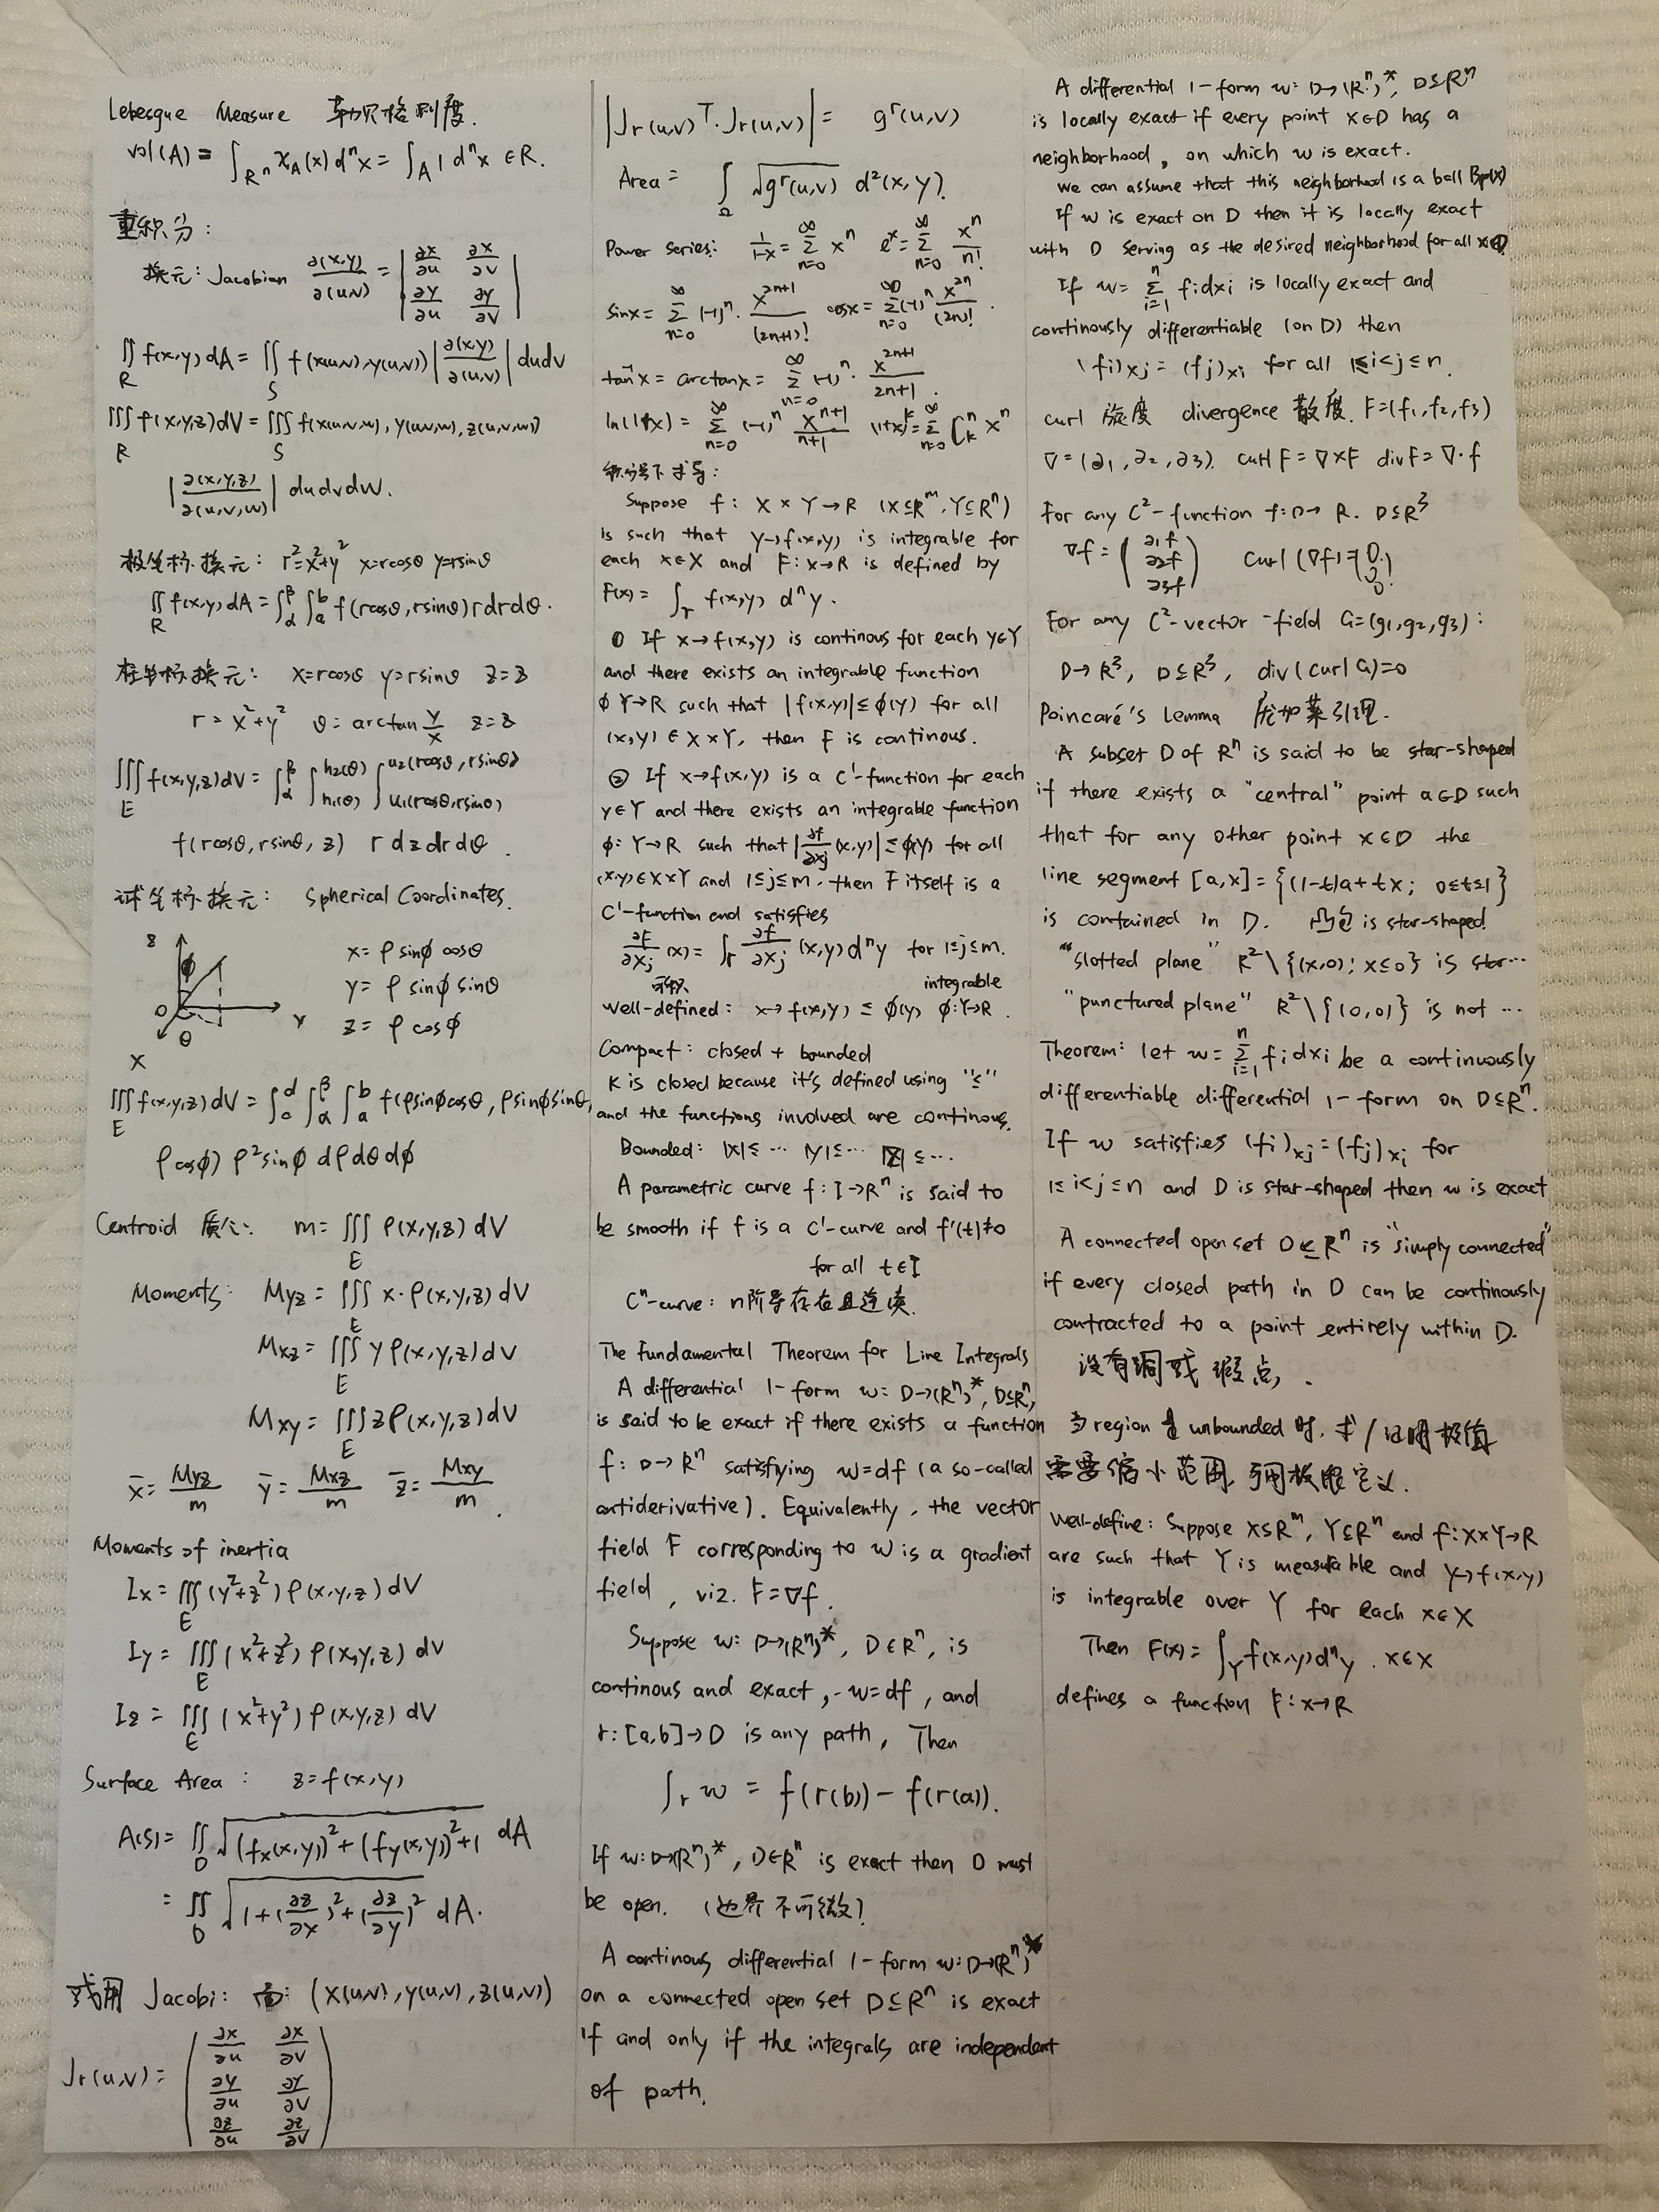 Lebesgue Measure 勒贝格测度.
vol(A) = ∫_{R^n} χ_A(x) d^n x = ∫_A 1 d^n x ∈ R.
重积分:
换元: Jacobian ∂(x,y)/∂(u,v) = | ∂x/∂u ∂x/∂v |
| ∂y/∂u ∂y/∂v |
∬_R f(x,y) dA = ∬_S f(x(u,v), y(u,v)) |∂(x,y)/∂(u,v)| du dv
∭_R f(x,y,z) dV = ∭_S f(x(u,v,w), y(u,v,w), z(u,v,w))
|∂(x,y,z)/∂(u,v,w)| du dv dw.
极坐标换元: r²=x²+y² x=rcosθ y=rsinθ
∬_R f(x,y) dA = ∫_α^β ∫_a^b f(rcosθ, rsinθ) r dr dθ.
柱坐标换元: x=rcosθ y=rsinθ z=z
r = x²+y² θ = arctan y/x z=z
∭_E f(x,y,z) dV = ∫_α^β ∫_{h₁(θ)}^{h₂(θ)} ∫_{u₁(rcosθ, rsinθ)}^{u₂(rcosθ, rsinθ)}
f(rcosθ, rsinθ, z) r dz dr dθ.
球坐标换元: Spherical Coordinates.
z
φ
x = ρ sinφ cosθ
y = ρ sinφ sinθ
z = ρ cosφ
O
θ
Y
X
∭_E f(x,y,z) dV = ∫_c^d ∫_α^β ∫_a^b f(ρsinφcosθ, ρsinφsinθ,
ρcosφ) ρ² sinφ dρ dθ dφ
Centroid 质心: m = ∭_E ρ(x,y,z) dV
Moments: Myz = ∭_E x·ρ(x,y,z) dV
Mxz = ∭_E y ρ(x,y,z) dV
Mxy = ∭_E z ρ(x,y,z) dV
x̄ = Myz/m ȳ = Mxz/m z̄ = Mxy/m.
Moments of inertia
Ix = ∭_E (y²+z²) ρ(x,y,z) dV
Iy = ∭_E (x²+z²) ρ(x,y,z) dV
Iz = ∭_E (x²+y²) ρ(x,y,z) dV
Surface Area: z=f(x,y)
A(S) = ∬_D √((fx(x,y))²+(fy(x,y))²+1) dA
= ∬_D √(1+(∂z/∂x)²+(∂z/∂y)²) dA.
或用 Jacobi: 面: (x(u,v), y(u,v), z(u,v))
Jr(u,v) = ( ∂x/∂u ∂x/∂v
∂y/∂u ∂y/∂v
∂z/∂u ∂z/∂v )
|Jr(u,v)^T · Jr(u,v)| = g^r(u,v)
Area = ∫_Ω √(g^r(u,v)) d²(x,y).
Power series: 1/(1-x) = Σ_{n=0}^∞ x^n e^x = Σ_{n=0}^∞ x^n/n!
sinx = Σ_{n=0}^∞ (-1)^n · x^{2n+1}/(2n+1)! cosx = Σ_{n=0}^∞ (-1)^n x^{2n}/(2n)!.
tan⁻x = arctanx = Σ_{n=0}^∞ (-1)^n · x^{2n+1}/(2n+1).
ln(1+x) = Σ_{n=0}^∞ (-1)^n x^{n+1}/(n+1) (1+x)^k = Σ_{n=0}^∞ C_k^n x^n
积分号下求导:
Suppose f: X × Y → R (X⊆R^m, Y⊆R^n)
is such that y→f(x,y) is integrable for
each x∈X and F: x→R is defined by
F(x) = ∫_Y f(x,y) d^n y.
① If x→f(x,y) is continous for each y∈Y
and there exists an integrable function
ϕ Y→R such that |f(x,y)| ≤ ϕ(y) for all
(x,y) ∈ X×Y, then F is continous.
② If x→f(x,y) is a C'-function for each
y∈Y and there exists an integrable function
ϕ: Y→R such that |∂f/∂xj (x,y)| ≤ ϕ(y) for all
(x,y)∈X×Y and 1≤j≤m. then F itself is a
C'-function and satisfies
∂F/∂xj (x) = ∫_Y ∂f/∂xj (x,y) d^n y for 1≤j≤m.
可积 integrable
well-defined: x→f(x,y) ≤ ϕ(y) ϕ:Y→R.
Compact: closed + bounded
K is closed because it's defined using "≤"
and the functions involved are continous.
Bounded: |X|≤… |Y|≤… |Z|≤…
A parametric curve f: I→R^n is said to
be smooth if f is a C'-curve and f'(t)≠0
for all t∈I
C^n-curve: n阶导存在且连续.
The Fundamental Theorem for Line Integrals
A differential 1-form w: D→(R^n)*, D⊆R^n,
is said to be exact if there exists a function
f: D→R^n satisfying w=df (a so-called
antiderivative). Equivalently, the vector
field F corresponding to w is a gradient
field, viz. F=∇f.
Suppose w: D→(R^n)*, D∈R^n, is
continous and exact, -w=df, and
r: [a,b]→D is any path, Then
∫_r w = f(r(b)) - f(r(a)).
If w: D→(R^n)*, D∈R^n is exact then D must
be open. (边界不可微)
A continous differential 1-form w: D→(R^n)*
on a connected open set D⊆R^n is exact
if and only if the integrals are independent
of path.
A differential 1-form w: D→(R^n)*, D⊆R^n
is locally exact if every point x∈D has a
neighborhood, on which w is exact.
we can assume that this neighborhood is a ball Bρ(x)
If w is exact on D then it is locally exact
with D serving as the desired neighborhood for all x∈D
If w = Σ_{i=1}^n fidxi is locally exact and
continously differentiable (on D) then
(fi)xj = (fj)xi for all 1≤i<j≤n.
curl 旋度 divergence 散度. F=(f1,f2,f3)
∇=(∂1,∂2,∂3). curl F = ∇×F div F = ∇·f
For any C²-function f: D→R. D⊆R³
∇f = (∂1f ∂2f ∂3f) curl(∇f)=(0 0 0)
For any C²-vector-field G=(g1,g2,g3):
D→R³, D⊆R³, div(curl G)=0
Poincaré's Lemma 庞加莱引理.
A subset D of R^n is said to be star-shaped
if there exists a "central" point a∈D such
that for any other point x∈D the
line segment [a,x]={(1-t)a+tx; 0≤t≤1}
is contained in D. 凸包 is star-shaped.
"slotted plane" R²\{(x,0); x≤0} is star…
"punctured plane" R²\{(0,0)} is not …
Theorem: let w=Σ_{i=1}^n fidxi be a continuously
differentiable differential 1-form on D⊆R^n.
If w satisfies (fi)xj=(fj)xi for
1≤i<j≤n and D is star-shaped then w is exact
A connected open set D⊆R^n is "simply connected"
if every closed path in D can be continously
contracted to a point entirely within D.
没有洞或瑕点.
当region是unbounded时. 求/证明极值
需要缩小范围, 利用极限定义.
Well-define: Suppose X⊆R^m, Y⊆R^n and f: X×Y→R
are such that Y is measurable and y→f(x,y)
is integrable over Y for each x∈X
Then F(x)=∫_Y f(x,y)d^n y. x∈X
defines a function F: x→R